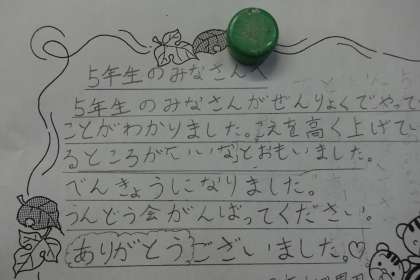 5年生のみなさんへ
5年生のみなさんがぜんりょくでやって
ことがわかりました。こえを高く上げてい
るところが「いいな」とおもいました。
べんきょうになりました。
うんどう会がんばってください。
ありがとうございました。♡